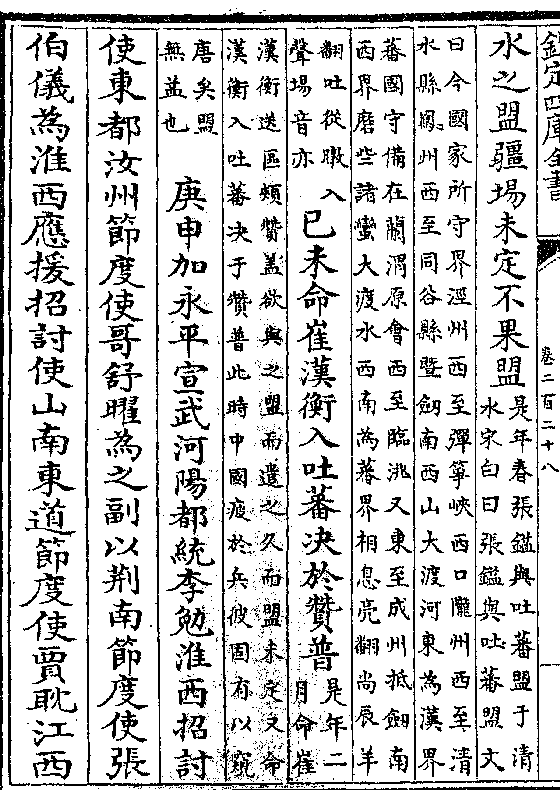 欽定四庫全書
卷二百二十八
水之盟疆場未定不果盟
是年春張鎰與吐蕃盟于清
水宋白曰張鎰與吐蕃盟文
曰今國家所守界涇州西至彈箏峽西口隴州西至清
水縣鳳州西至同谷縣暨劒南西山大渡河東為漢界
蕃國守備在蘭渭原會西至臨洮又東至成州抵劒南
西界磨些諸蠻大渡水西南為蕃界相息亮翻尚辰羊
翻吐從暾入
聲場音亦
已未命崔漢衡入吐蕃决於贊普
是年二
月命崔
漢衡送區頰贊蓋欲與之盟而遣之久而盟未定又命
漢衡入吐蕃决于贊普此時中國疲於兵彼固有以窺
唐矣盟
無益也
庚申加永平宣武河陽都統李勉淮西招討
使東都汝州節度使哥舒曜為之副以荆南節度使張
伯儀為淮西應援招討使山南東道節度使賈耽江西